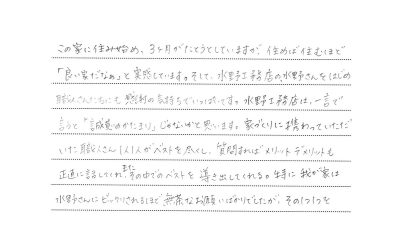 この家に住み始め、3ヶ月がたとうとしていますが、住めば住むほど
「良い家だなぁ」と実感しています。そして、水野工務店の水野さんをはじめ
職人さんたちにも感謝の気持ちでいっぱいです。水野工務店は、一言で
言うと「誠意のかたまり」じゃないかと思います。家づくりに携わっていただ
いた職人さん1人1人がベストを尽くし、質問すればメリットデメリットも
正直に話してくれ、またその中でのベストを導き出してくれる。特に我が家は
水野さんにビックリされるほど無茶なお願いばかりでしたが、その1つ1つを